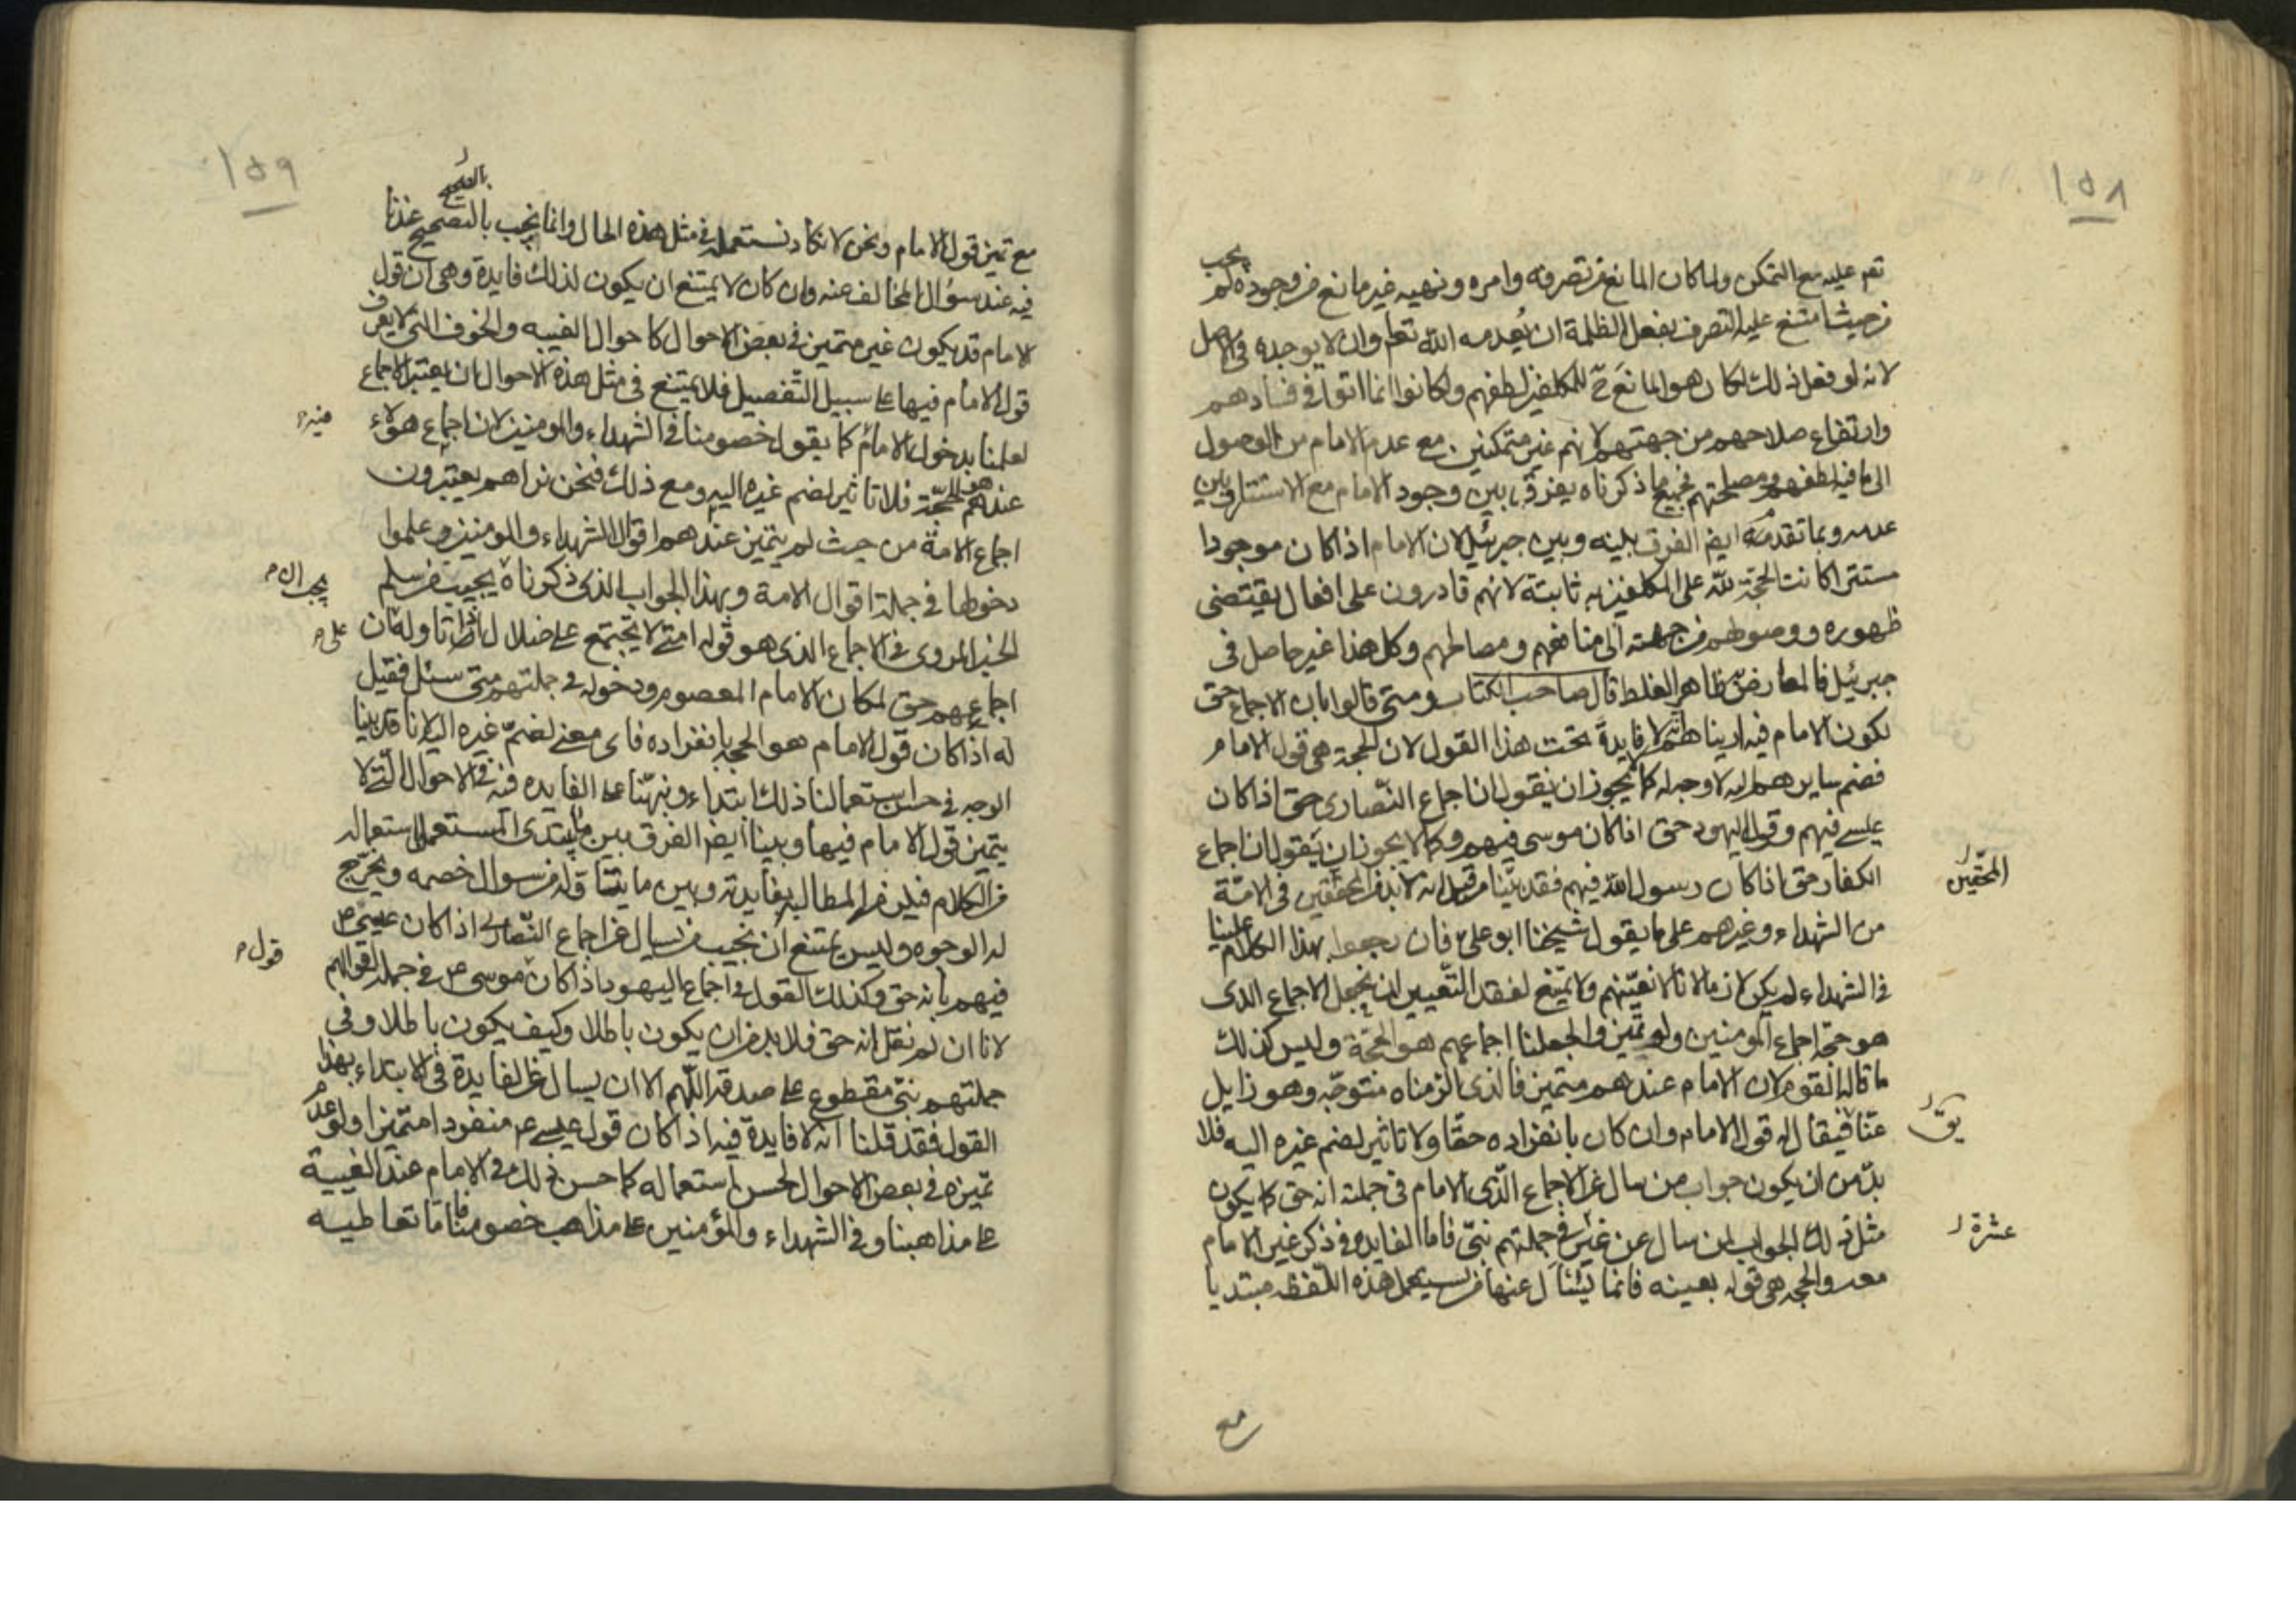 ١٥٨
يجب
تعم عليه مع التمكن ولما كان المانع من تصرفه وامره ونهيه غير مانع من وجوده لم
من حيث امتنع عليه التصرف بفعل الظلمة ان يعدمه الله تعم وان لا يوجده في الاصل
لانه لو فعل ذلك لكان هو المانع ح للمكلفين لطفهم ولكانوا انما اتوا في فسادهم
وارتفاع صلاحهم من جهته لانهم غير متمكنين مع عدم الامام من الوصول
الى ما فيه لطفهم ومصلحتهم فجميع ما ذكرناه يفرق بين وجود الامام مع الاستتار وبين
عدمه وبما تقدمه ايض الفرق بينه وبين جبرئيل لان الامام اذا كان موجودا
مستترا كانت الحجة لله على المكلفين به ثابتة لانهم قادرون على افعال يقيتضى
ظهوره ووصولهم من جهته الى منافعهم ومصالحهم وكل هذا غير حاصل فى
جبرئيل فالمعارض به ظاهر الغلط قال صاحب الكتاب ومتى قالوا بان الاجماع حق
لكون الامام فيه ارينا هم انه لا فايدة تحت هذا القول لان الحجة هى قول الامام
فضم سايرهم اليه لا وجه له كما لا يجوز ان يقول ان اجماع النصارى حق اذا كان
عيسى فيهم وقول اليهود حق اذا كان موسى فيهم وكما لا يجوز ان يقول ان اجماع
الكفار حق اذا كان رسول الله فيهم فقد بينا من قبل انه لا بد من المحققين فى الامة
المحقين
من الشهداء وغيرهم على ما يقول شيخنا ابو على فان رجعوا بهذا الكلام علينا
فى الشهداء لم يكن لازما لانا لا نعينهم ولا يمتنع لفقد التعيين ان نجعل الاجماع الذى
هو حجة اجماع المومنين ولو تميزوا لجعلنا اجماعهم هو الحجة وليس كذلك
ما قاله القوم لان الامام عندهم متميز فالذى الزمناه متوجه وهو زايل
عنا فيقال له قول الامام وان كان بانفراده حقا ولا تاثير لضم غيره اليه فلا
يق
بد من ان يكون جواب من سال عن الاجماع الذى الامام فى جملته انه حق كما يكون
مثل ذلك الجواب لمن سال عن غيره فى جملتهم نبى فاما الفايدة فى ذكر غير الامام
عشرة
معه والحجه هى قوله بعينه فانما يسال عنها من يستعمل هذه اللفظه مبتديا
مع
١٥٩
مع تميز قول الامام ونحن لا نكاد نستعمله فى مثل هذه الحال وانما نجيب بالتصحيح عندنا
فيه عند سؤال المخالف عنه وان كان لا يمتنع ان يكون لذلك فايدة وهى ان قول
الامام قد يكون غير متميز فى بعض الاحوال كاحوال الغيبه والخوف التى لا يعرف
قول الامام فيها على سبيل التفصيل فلا يمتنع فى مثل هذه الاحوال ان يعتبر الاجماع
لعلمنا بدخول الامام كما يقول خصومنا فى الشهداء والمومنين لان اجماع هؤلاء
فيه
عندهم هو الحجة فلا تاثير لضم غيره اليه ومع ذلك فنحن نراهم يعتبرون
اجماع الامة من حيث لم يتميز عندهم اقوال الشهداء والمومنين وعلموا
دخولها فى جملة اقوال الامة وبهذا الجواب الذى ذكرناه يجيب من سلم
الخبر المروى فى الاجماع الذى هو قوله امتى لا تجتمع على ضلال اذا تاوله ان
على
اجماعهم حق لمكان الامام المعصوم ودخوله فى جملتهم متى سئل فقيل
له اذا كان قول الامام هو الحجه بانفراده فاى معنى لضم غيره اليه لانا قد بينا
الوجه فى حسن استعمالنا ذلك ابتداء ونبهنا على الفايده فيه فى الاحوال التى لا
يتميز قول الامام فيها وبينا ايض الفرق بين ما يبتدى المستعمل استعماله
من الكلام فيلزمه المطالبة بفايدته وبين ما ينساق له من سوال خصمه ويخرج
له الوجوه وليس يمتنع ان نجيب من سال عن اجماع النصارى اذا كان عيسى
فيهم بانه حق وكذلك القول فى اجماع اليهود اذا كان موسى فى جملة اقوالهم
قول
لانا ان لم نقل انه حق فلا بد من ان يكون باطلا وكيف يكون باطلا وفى
جملتهم نبى مقطوع على صدقه اللهم الا ان يسال عن الفايدة فى الابتداء بهذا
القول فقد قلنا انه لا فايدة فيه اذا كان قول عيسى منفردا متميزا ولو عدم
تميزه فى بعض الاحوال لحسن استعماله كما حسن ذلك فى الامام عند الغيبة
على مذاهبنا وفى الشهداء والمؤمنين على مذاهب خصومنا فاما تعاطيه